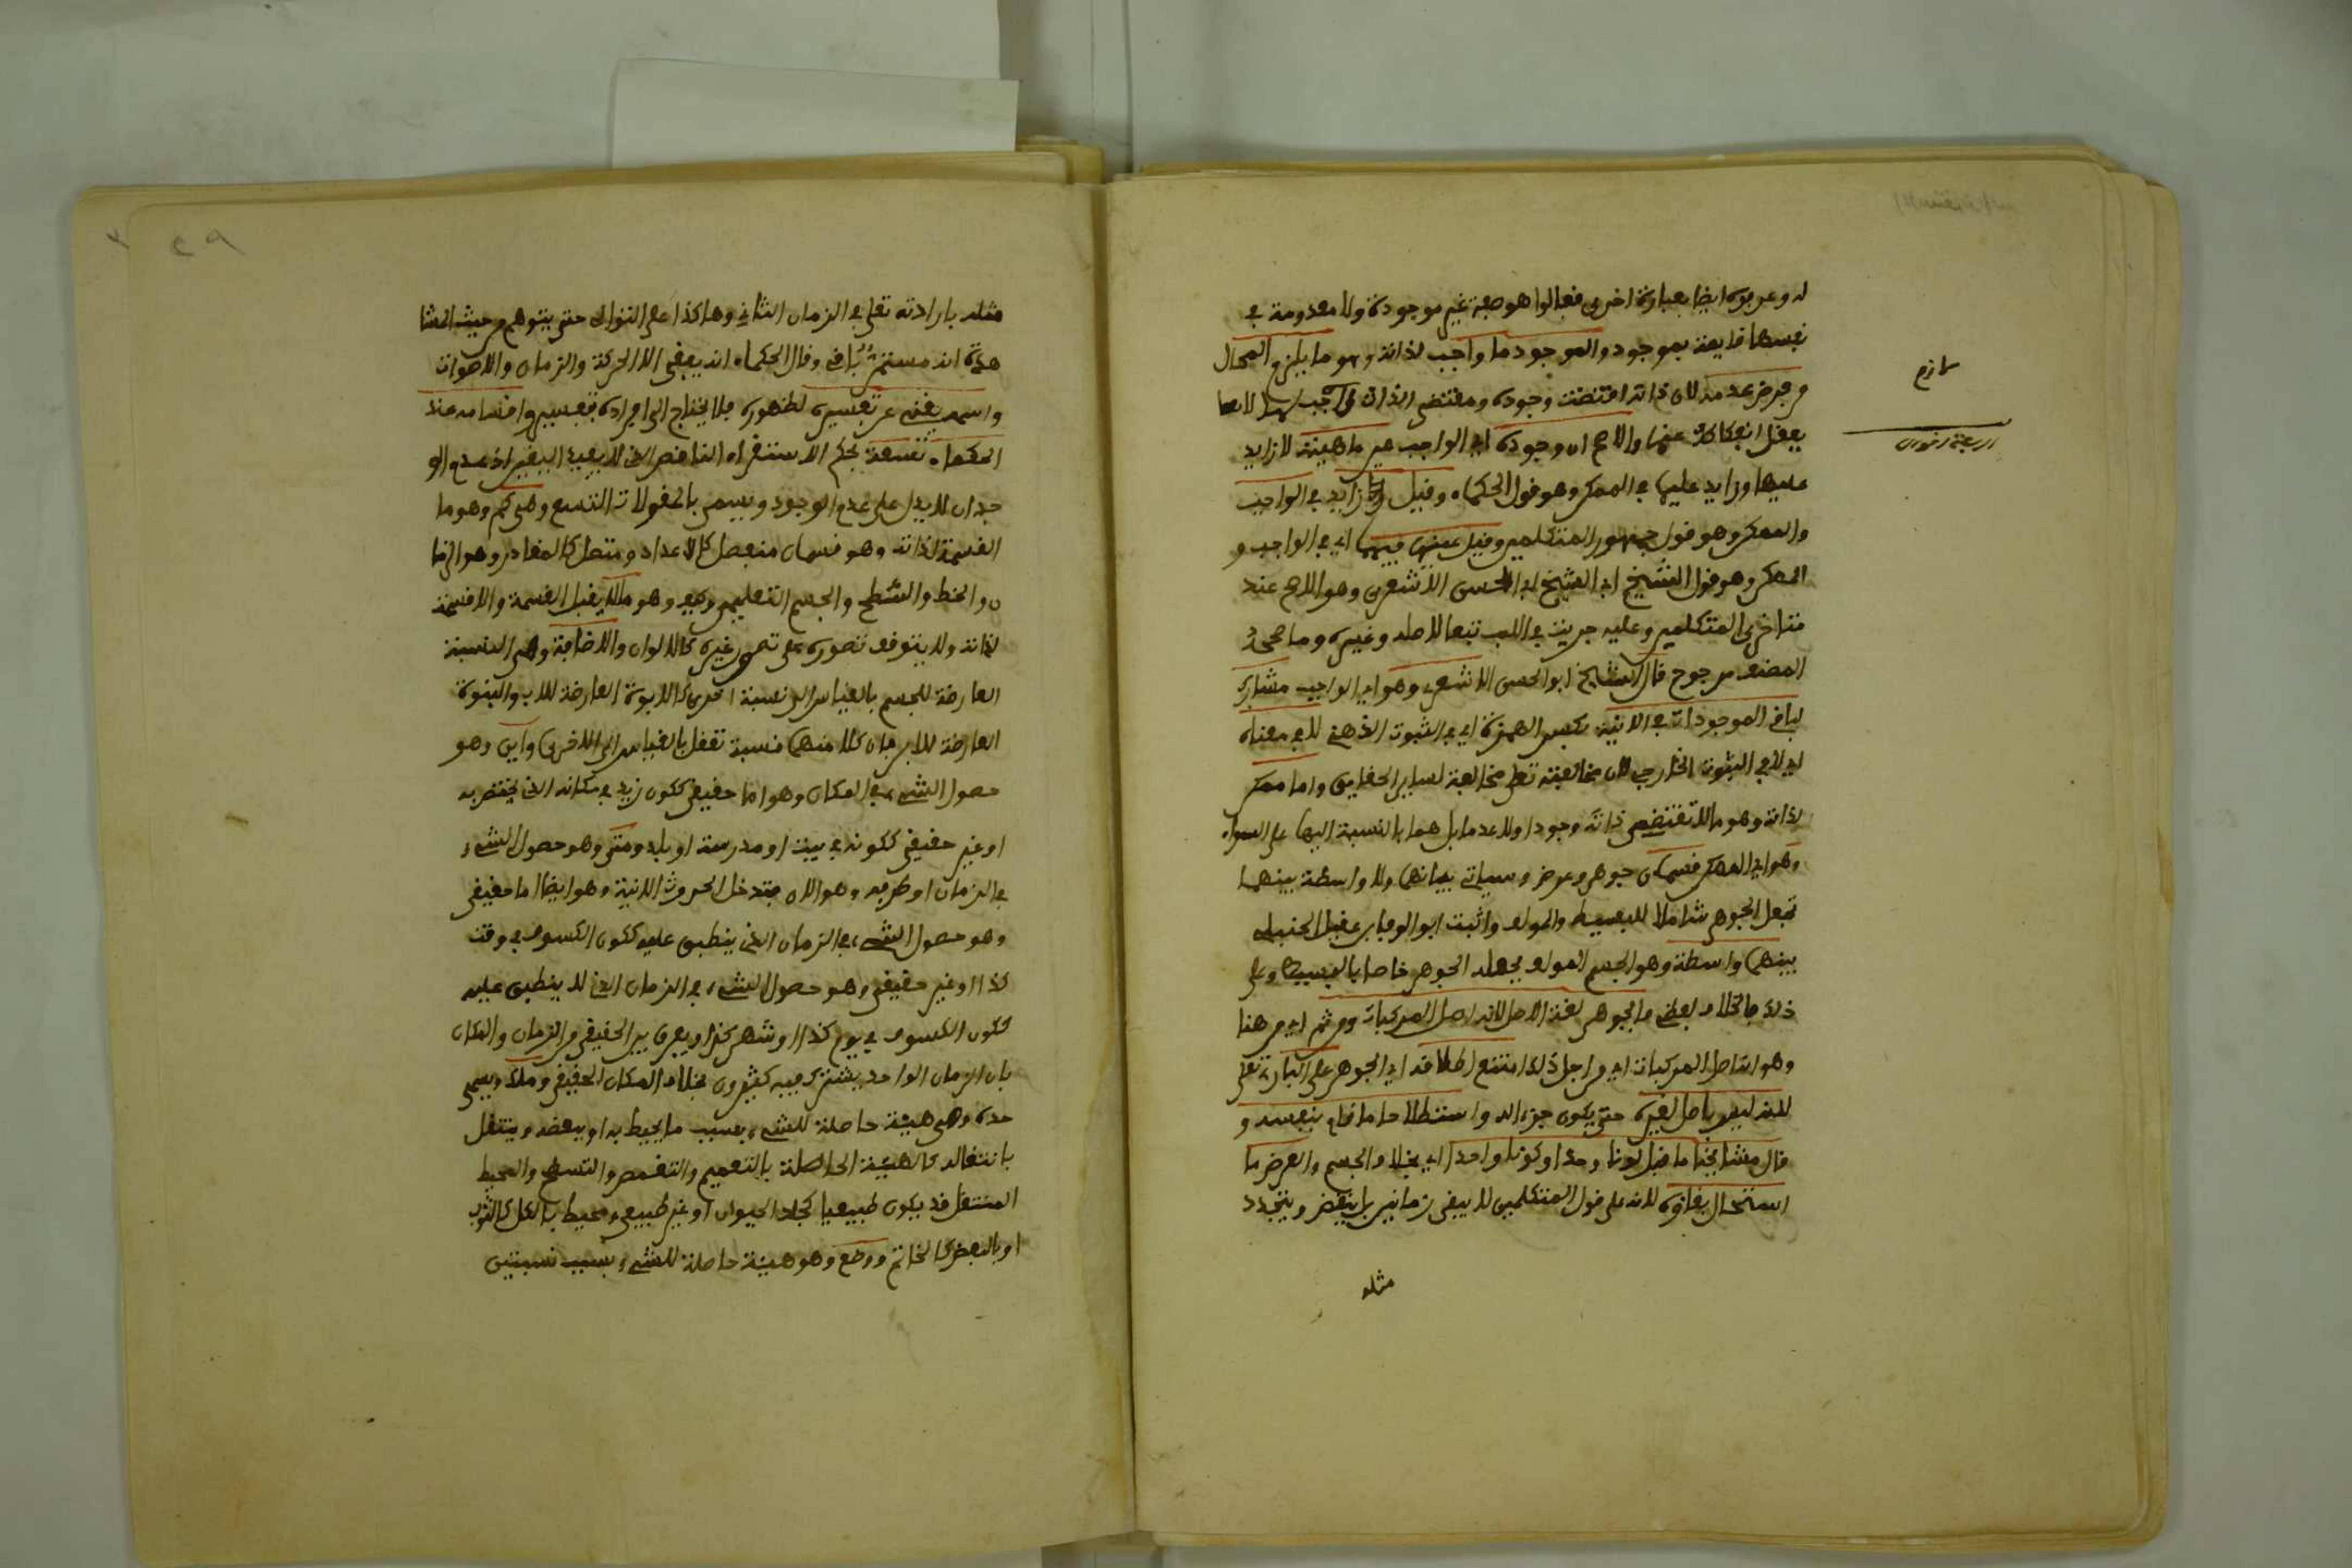 له وعرفوه ايضا بعبارة اخرى فقالوا هو صفة غير موجودة ولا معدومة في
نفسها قايمة بموجود والموجود ما واجب لذاته وهو ما يلزم المحال
من فرض عدمه لان ذاته اقتضت وجوده ومقتضى الذات واجب لها لا
يعقل انفكاكه عنها والاصح ان وجوده اي الواجب عين ماهيته لا زايد
عليها وزايد عليها في الممكن وهو قول الحكماء وقيل زايد في الواجب
والممكن وهو قول جمهور المتكلمين وقيل عينها فيهما اي في الواجب و
الممكن وهو قول الشيخ اي الشيخ ابي الحسن الاشعري وهو الاصح عند
متاخري المتكلمين وعليه جريت في اللب تبعا لاصله وغيره وما صححه
المصنف مرجوح قال الشيخ ابو الحسن الاشعري وهو اي الواجب مشارك
لباقي الموجودات في الانية بكسر الهمزة اي في الثبوت الذهني لا في معناه
اي لا في الثبوت الخارجي لان مخالفته تعلى مخالفة لساير الحقايق واما ممكن
لذاته وهو ما لا تقتضي ذاته وجودا ولا عدما بل هما بالنسبة اليها على السواء
وهو اي الممكن قسمان جوهر وعرض وسياتي بيانهما ولا واسطة بينهما
بجعل الجوهر شاملا للبسيط والمولف واثبت ابو الوفا بن عقيل الحنبلي
بينهما واسطة وهو الجسم المولف بجعله الجوهر خاصا بالبسيط وعلى
ذلك فالخلاف لفظي والجوهر لغة الاصل لانه اصل المركبات ومن ثم اي من هنا
وهو انه اصل المركبات اي من اجل ذلك امتنع اطلاقه اي الجوهر على الباري تعلى
لانه ليس باصل لغيره حتى يكون جزءا له واصطلاحا ما قام بنفسه و
قال مشايخنا ما قبل لونا واحدا وكونا واحدا اي بخلاف الجسم والعرض ما
استحال بقاؤه لانه على قول المتكلمين لا يبقى زمانين بل ينقضي ويتجدد
مثله
لازم
مثله بارادته تعلى في الزمان الثاني وهاكذا على التوالي حتى يتوهم من حيث المشا
هدة انه مستمر باقي وقال الحكماء انه يبقى الا الحركة والزمان والاصوات
واسمه يغني عن تفسيره لظهوره فلا يحتاج الى افراده بتفسير واقسامه عند
الحكماء تسعة بحكم الاستقراء الناقص الذي لا يفيد اليقين اذ عدم الو
جدان لا يدل على عدم الوجود ويسمى بالمقولات التسع وهي كم وهو ما
القسمة لذاته وهو قسمان منفصل كالاعداد ومتصل كالمقادير وهو الزما
ن والخط والسطح والجسم التعليمي وكيف وهو ما لا يقبل القسمة واللاقسمة
لذاته ولا يتوقف تصوره على تصور غيره كالالوان والاضافة وهي النسبة
العارضة للجسم بالقياس الى نسبة اخرى كالابوة العارضة للاب والبنوة
العارضة للابن فان كلا منهما نسبة تعقل بالقياس الى الاخرى واين وهو
حصول الشيء في المكان وهو اما حقيقي ككون زيد في مكانه الذي يختص به
او غير حقيقي ككونه في بيت او مدرسة او بلد ومتى وهو حصول الشيء
في الزمان او طرفه وهو الان فتدخل الحروف الانية وهو ايضا اما حقيقي
وهو حصول الشيء في الزمان الذي ينطبق عليه ككون الكسوف في وقت
كذا او غير حقيقي وهو حصول الشيء في الزمان الذي لا ينطبق عليه
ككون الكسوف في يوم كذا او شهر كذا ويفرق بين الحقيقي من الزمان والمكان
بان الزمان الواحد يشترك فيه كثيرون بخلاف المكان الحقيقي وملك ويسمى
جدة وهي هيئة حاصلة للشيء بسبب ما يحيط به او ببعضه وينتقل
بانتقاله كالهيئة الحاصلة بالتعميم والتقمص والتسلح والمحيط
المنتقل قد يكون طبيعيا كجلد الحيوان او غير طبيعي محيط بالكل كالثوب
او بالبعض كالخاتم ووضع وهو هيئة حاصلة للشيء بسبب نسبتين